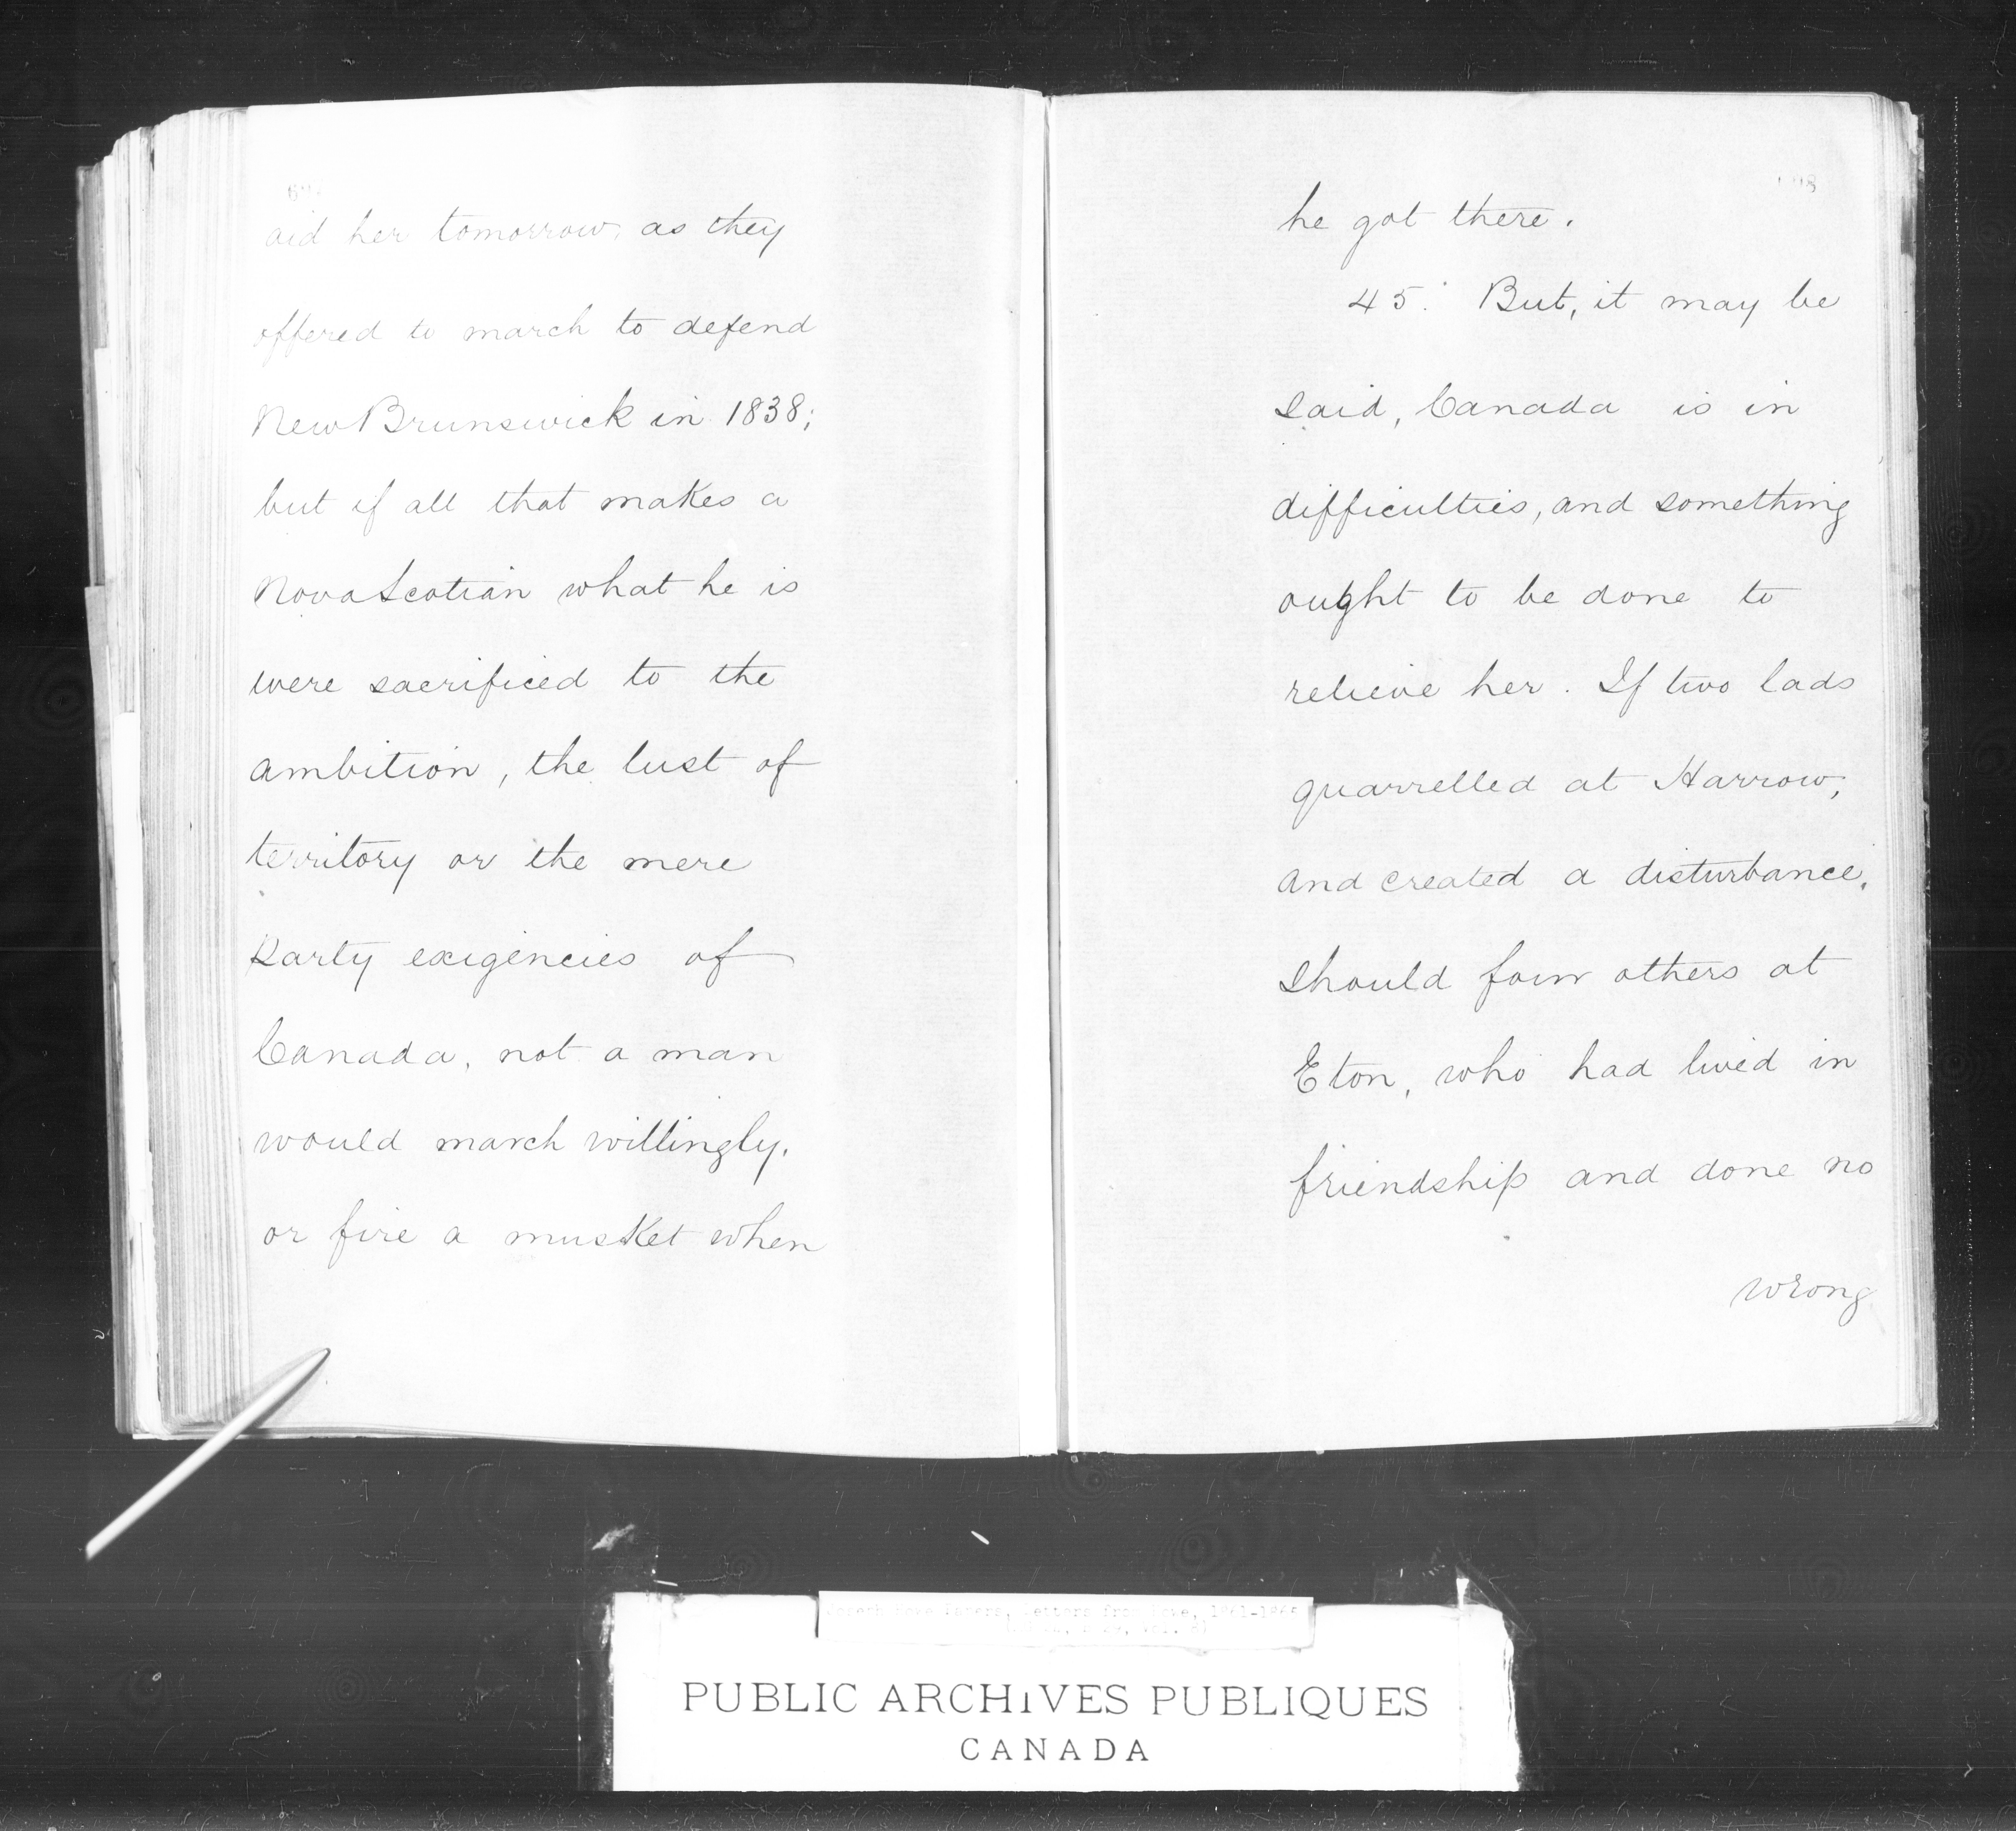 aid her tomorrow, as they
offered to march to defend
New Brunswick in 1838;
but if all that makes a
Nova Scotian what he is
were sacrificed to the
ambition, the lust of
territory or the mere
party exigencies of
Canada, not a man
would march willingly,
or fire a musket when
he got there.
45. But, it may be
said, Canada is in
difficulties, and something
ought to be done to
relieve her. If two lads
quarrelled at Harrow,
and created a disturbance,
should four others at
Eton, who had lived in
friendship and done no
wrong
Joseph Howe Papers, Letters from Howe, 1861-1865
PUBLIC ARCHIVES PUBLIQUES
CANADA